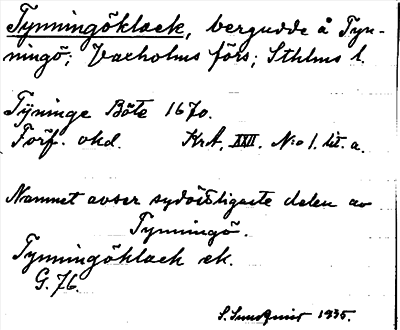 Tynningöklack, bergudde å Tyn-
ningö; Vaxholms förs; Sthlms l.
Tÿninge Böte 1670.
Förf. okd. KrA, XXII. N:o 1. lit. a.
Namnet avser sydöstligaste delen av
Tynningö.
Tynningöklack ek.
G. 76.
S. Sundquist 1935